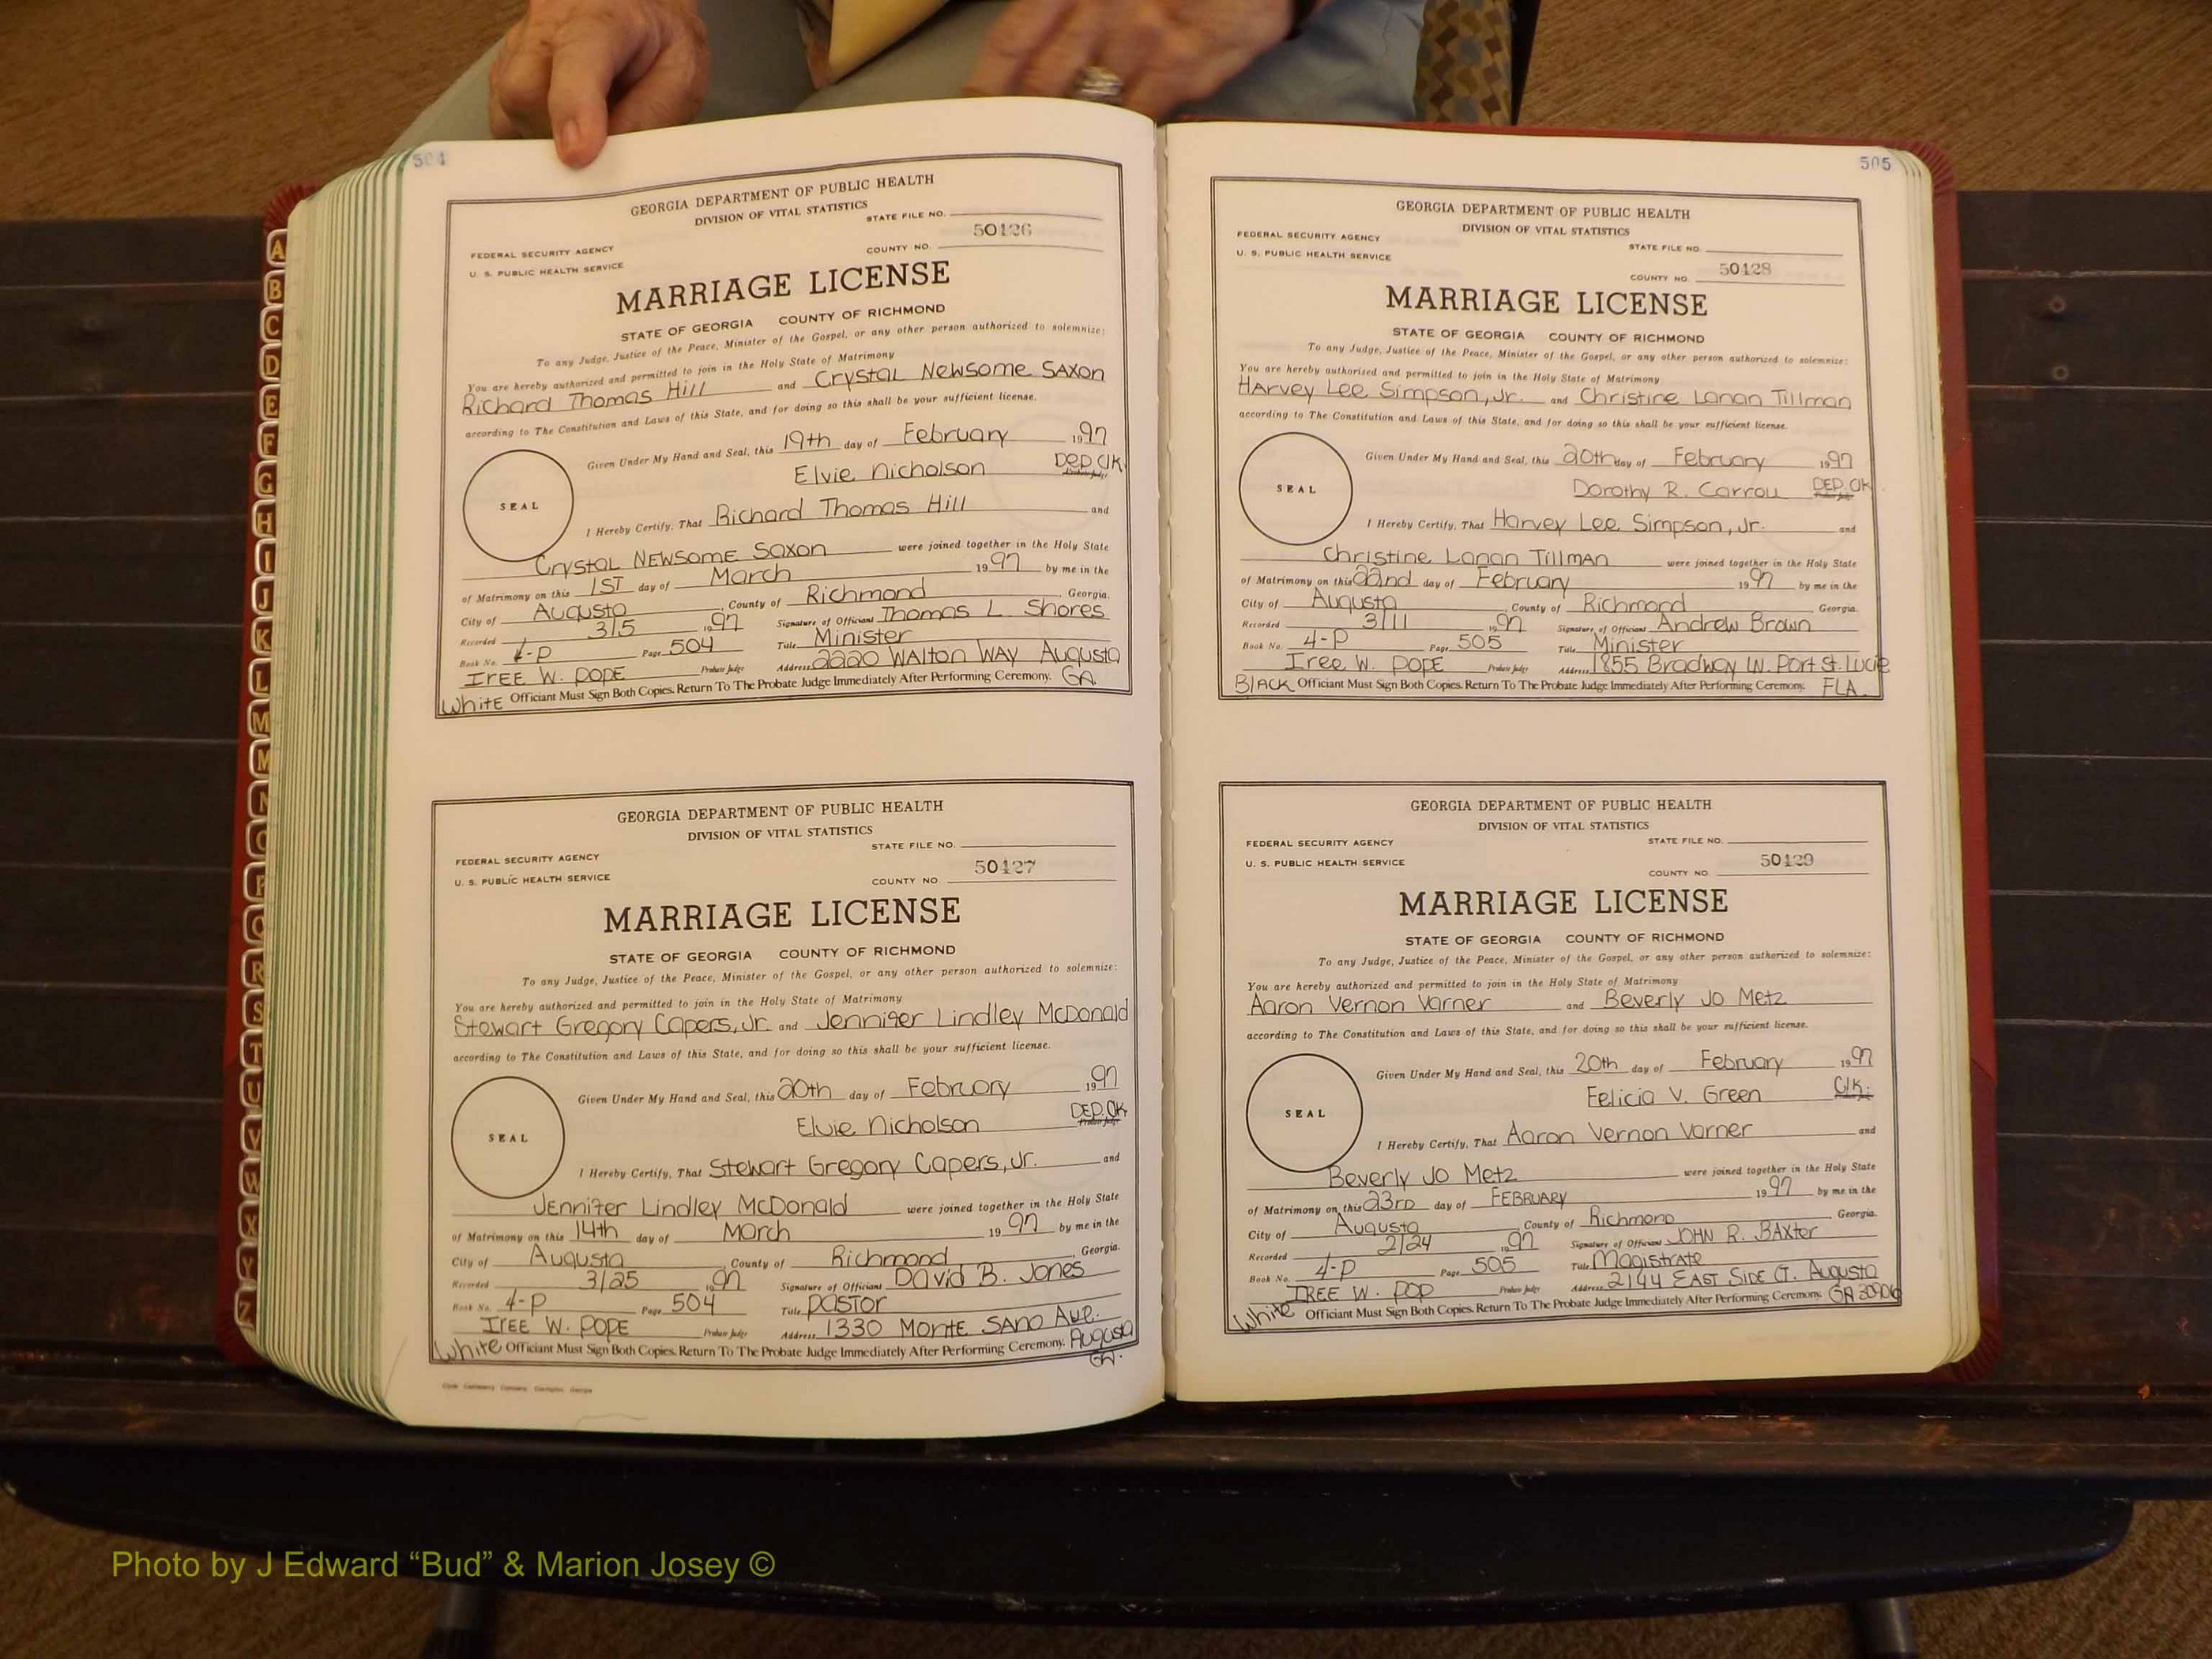 504
GEORGIA DEPARTMENT OF PUBLIC HEALTH
DIVISION OF VITAL STATISTICS
STATE FILE NO.
FEDERAL SECURITY AGENCY
COUNTY NO. 50126
U. S. PUBLIC HEALTH SERVICE
MARRIAGE LICENSE
STATE OF GEORGIA COUNTY OF RICHMOND
To any Judge, Justice of the Peace, Minister of the Gospel, or any other person authorized to solemnize:
You are hereby authorized and permitted to join in the Holy State of Matrimony
Richard Thomas Hill and Crystal Newsome Saxon
according to The Constitution and Laws of this State, and for doing so this shall be your sufficient license.
Given Under My Hand and Seal, this 19th day of February 1997
Elvie Nicholson Dep Clk
SEAL
I Hereby Certify, That Richard Thomas Hill and
Crystal Newsome Saxon were joined together in the Holy State
of Matrimony on this 1st day of March 1997 by me in the
City of Augusta, County of Richmond, Georgia.
Recorded 3/5 1997 Signature of Officiant Thomas L. Shores
Book No. 4-P Page 504 Title Minister
Iree W. Pope Probate Judge Address 2220 Walton Way Augusta
White Officiant Must Sign Both Copies. Return To The Probate Judge Immediately After Performing Ceremony. GA.
GEORGIA DEPARTMENT OF PUBLIC HEALTH
DIVISION OF VITAL STATISTICS
STATE FILE NO.
FEDERAL SECURITY AGENCY
COUNTY NO. 50127
U. S. PUBLIC HEALTH SERVICE
MARRIAGE LICENSE
STATE OF GEORGIA COUNTY OF RICHMOND
To any Judge, Justice of the Peace, Minister of the Gospel, or any other person authorized to solemnize:
You are hereby authorized and permitted to join in the Holy State of Matrimony
Stewart Gregory Capers, Jr. and Jennifer Lindley McDonald
according to The Constitution and Laws of this State, and for doing so this shall be your sufficient license.
Given Under My Hand and Seal, this 20th day of February 1997
Elvie Nicholson Dep. Clk
SEAL
I Hereby Certify, That Stewart Gregory Capers, Jr. and
Jennifer Lindley McDonald were joined together in the Holy State
of Matrimony on this 14th day of March 1997 by me in the
City of Augusta, County of Richmond, Georgia.
Recorded 3/25 1997 Signature of Officiant David B. Jones
Book No. 4-P Page 504 Title Pastor
Iree W. Pope Probate Judge Address 1330 Monte Sano Ave.
White Officiant Must Sign Both Copies. Return To The Probate Judge Immediately After Performing Ceremony. Augusta
GA.
505
GEORGIA DEPARTMENT OF PUBLIC HEALTH
DIVISION OF VITAL STATISTICS
FEDERAL SECURITY AGENCY
STATE FILE NO.
U. S. PUBLIC HEALTH SERVICE
COUNTY NO. 50128
MARRIAGE LICENSE
STATE OF GEORGIA COUNTY OF RICHMOND
To any Judge, Justice of the Peace, Minister of the Gospel, or any other person authorized to solemnize:
You are hereby authorized and permitted to join in the Holy State of Matrimony
Harvey Lee Simpson, Jr. and Christine Lanan Tillman
according to The Constitution and Laws of this State, and for doing so this shall be your sufficient license.
Given Under My Hand and Seal, this 20th day of February 1997
Dorothy R. Carroll Dep. Clk
SEAL
I Hereby Certify, That Harvey Lee Simpson, Jr. and
Christine Lanan Tillman were joined together in the Holy State
of Matrimony on this 22nd day of February 1997 by me in the
City of Augusta, County of Richmond Georgia.
Recorded 3/11 1997 Signature of Officiant Andrew Brown
Book No. 4-P Page 505 Title Minister
Iree W. Pope Probate Judge Address 1855 Bradway LN. Port St. Lucie
Black Officiant Must Sign Both Copies. Return To The Probate Judge Immediately After Performing Ceremony. FLA.
GEORGIA DEPARTMENT OF PUBLIC HEALTH
DIVISION OF VITAL STATISTICS
FEDERAL SECURITY AGENCY
STATE FILE NO.
U. S. PUBLIC HEALTH SERVICE
COUNTY NO. 50129
MARRIAGE LICENSE
STATE OF GEORGIA COUNTY OF RICHMOND
To any Judge, Justice of the Peace, Minister of the Gospel, or any other person authorized to solemnize:
You are hereby authorized and permitted to join in the Holy State of Matrimony
Aaron Vernon Varner and Beverly Jo Metz
according to The Constitution and Laws of this State, and for doing so this shall be your sufficient license.
Given Under My Hand and Seal, this 20th day of February 1997
Felicia V. Green Clk.
SEAL
I Hereby Certify, That Aaron Vernon Varner and
Beverly Jo Metz were joined together in the Holy State
of Matrimony on this 23rd day of February 1997 by me in the
City of Augusta, County of Richmond Georgia.
Recorded 2/24 1997 Signature of Officiant John R. Baxter
Book No. 4-P Page 505 Title Magistrate
Iree W. Pop Probate Judge Address 2144 East Side Ct. Augusta
White Officiant Must Sign Both Copies. Return To The Probate Judge Immediately After Performing Ceremony. GA 30906
A
B
C
D
E
F
G
H
I
J
K
L
M
M
N
O
P
Q
R
S
T
U
V
W
X
Y
Z
Photo by J Edward “Bud” & Marion Josey ©